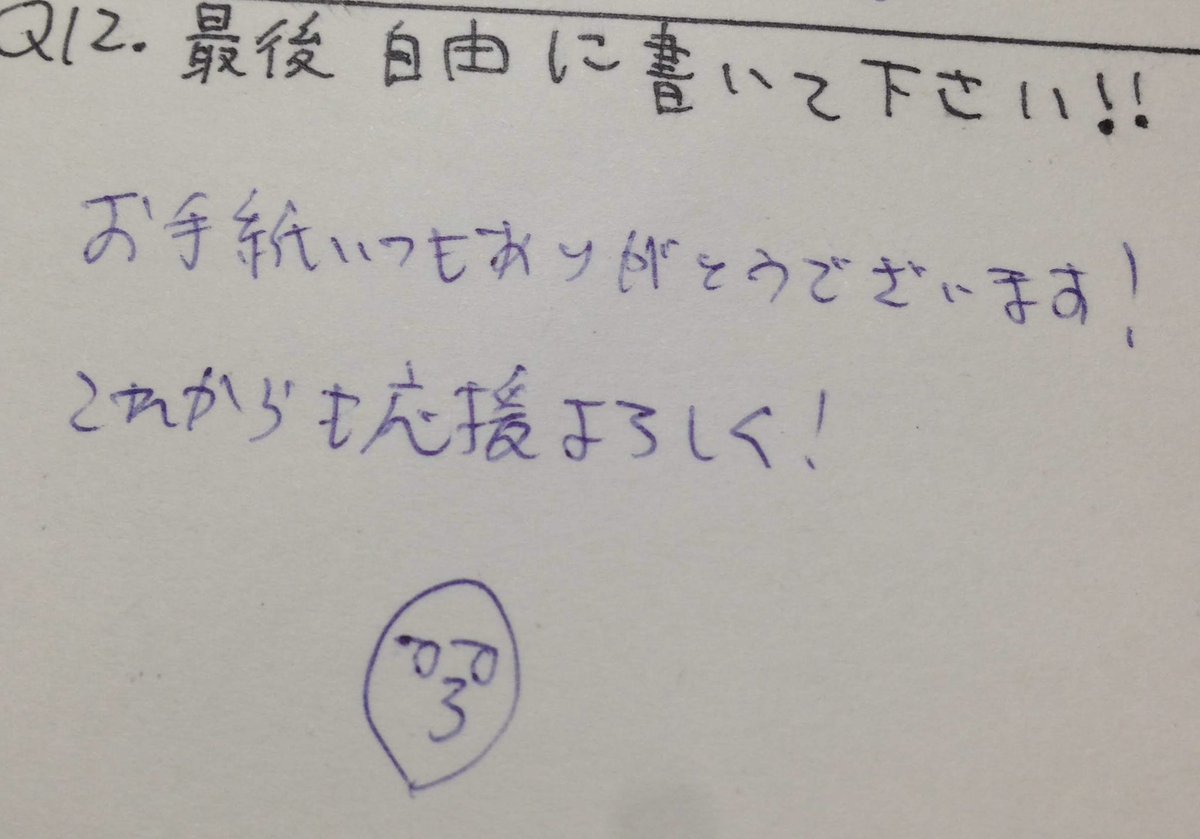 Q12. 最後 自由に書いて下さい!!
お手紙いつもありがとうございます!
これからも応援よろしく!